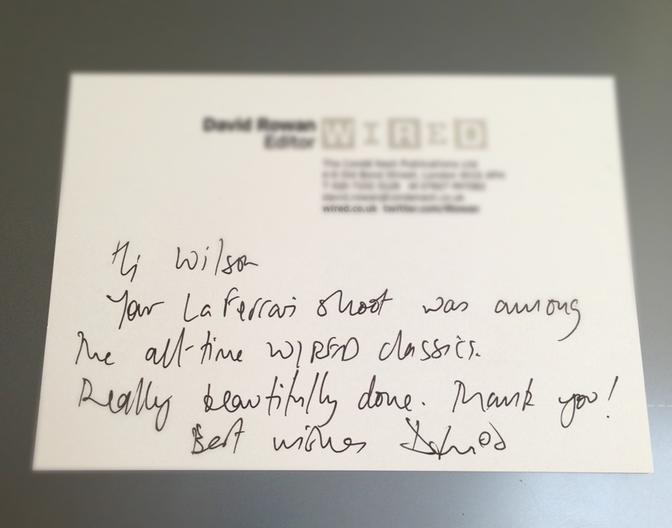 David Rowan WIRED
Editor
The Condé Nast Publications Ltd
wired.co.uk twitter.com/
Hi Wilson
Your LaFerrari shoot was among
the all-time WIRED classics.
Really beautifully done. Thank you!
Best wishes David